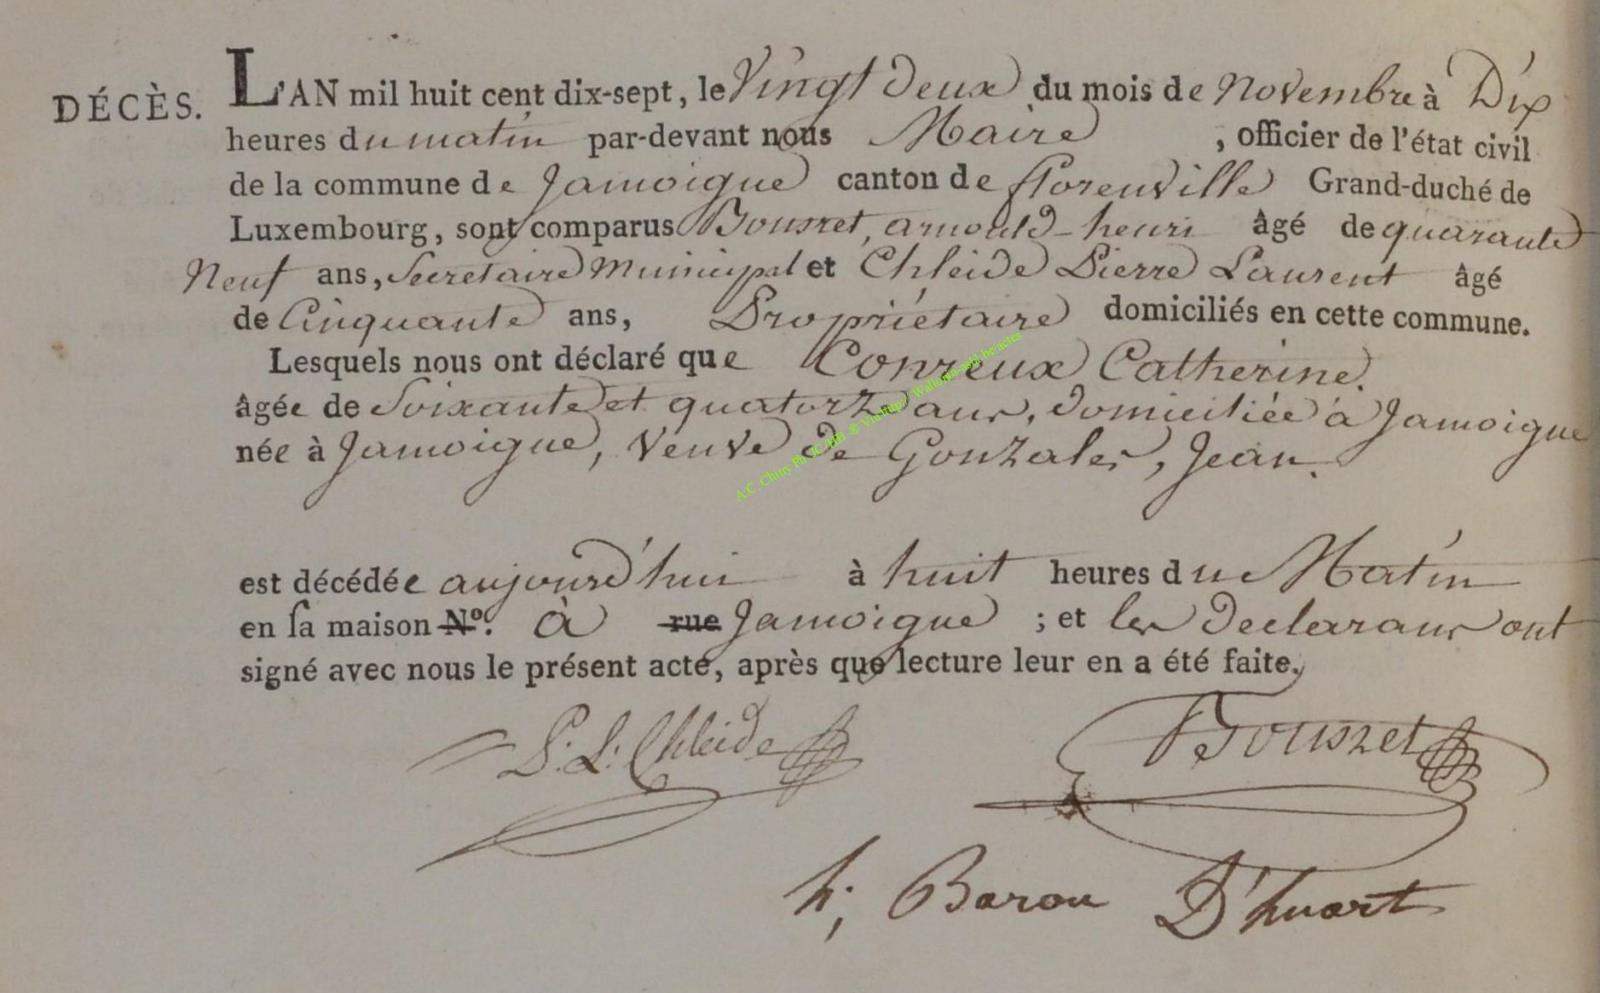 DÉCÈS. L'AN mil huit cent dix-sept, le Vingt deux du mois de Novembre à Dix
heures du matin par-devant nous Maire , officier de l'état civil
de la commune de Jamoigne canton de florenville Grand-duché de
Luxembourg, sont comparus Bousret, arnould-henri âgé de quarante
Neuf ans, Secretaire Municipal et Chleide Pierre Laurent âgé
de Cinquante ans, Propriétaire domiciliés en cette commune.
Lesquels nous ont déclaré que Conreux Catherine.
âgée de Soixante et quatorze ans, domiciliée à Jamoigne
née à Jamoigne, Veuve de Gonzales, Jean.
est décédée aujourd'hui à huit heures du Matin
en sa maison N°. à rue Jamoigne ; et les declarans ont
signé avec nous le présent acte, après que lecture leur en a été faite.
P. L. Chleide Bousret
h; Baron D'huart